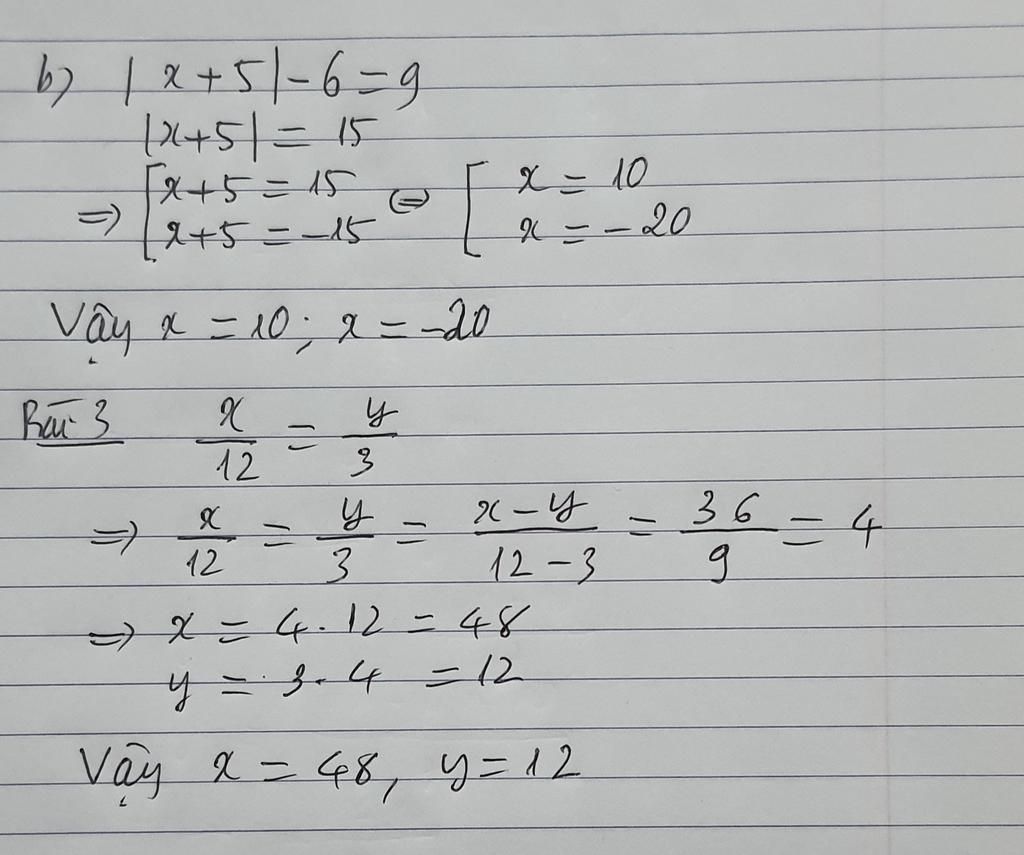 b) |x+5|-6=9
|x+5| = 15
=> [x+5 = 15 <=> [x = 10
x+5 = -15 x = -20
Vậy x = 10; x = -20
Bài 3 x/12 = y/3
=> x/12 = y/3 = x-y/12-3 = 36/9 = 4
=> x = 4.12 = 48
y = 3.4 = 12
Vậy x = 48, y = 12